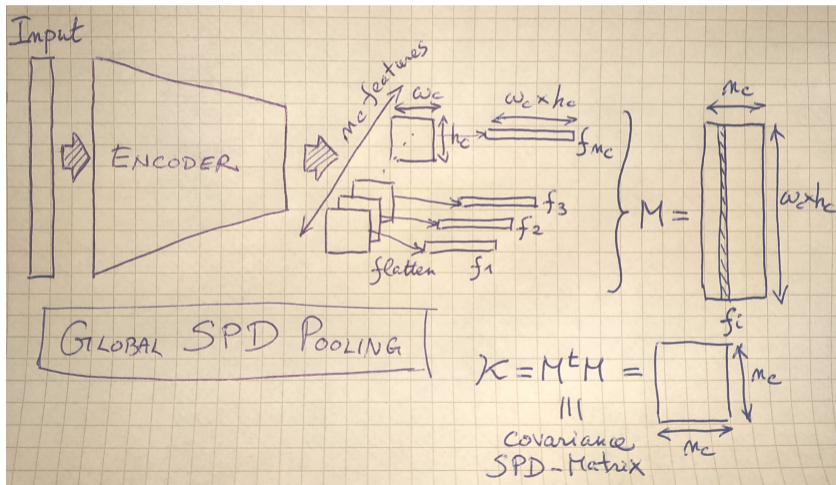 Input
ENCODER
nc-features
ωc
hc
ωc×hc
fnc
f3
f2
f1
flatten
M =
nc
ωc×hc
fi
GLOBAL SPD POOLING
K = MᵗM =
nc
nc
|||
covariance
SPD-Matrix